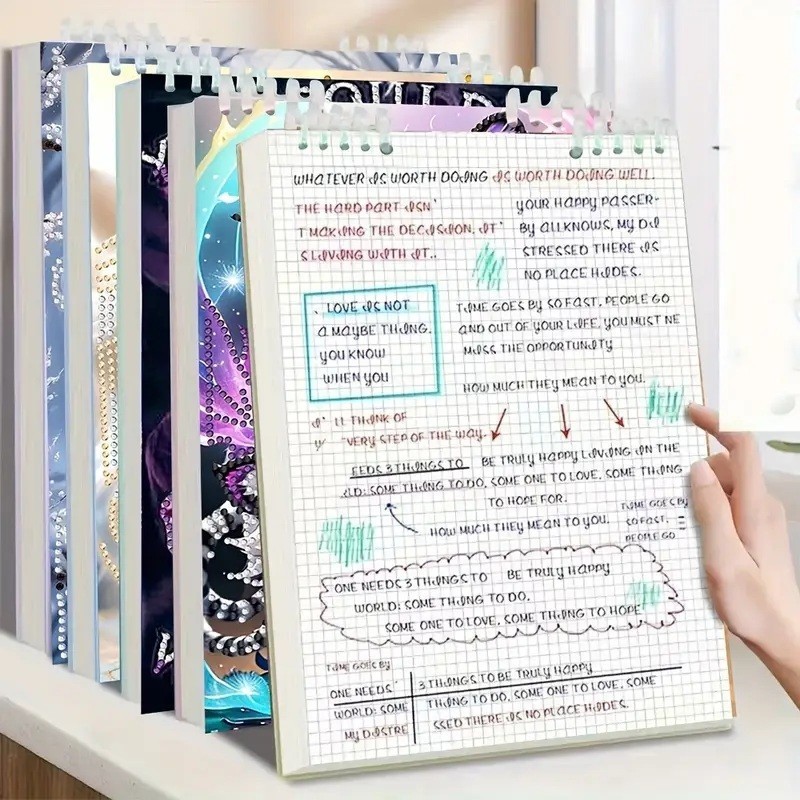 WHATEVER IS WORTH DOING IS WORTH DOING WELL.
THE HARD PART ISN'
T MAKING THE DECISION. IT'
S LIVING WITH IT..
YOUR HAPPY PASSER-
BY ALLKNOWS, MY DI
STRESSED THERE IS
NO PLACE HIDES.
. LOVE IS NOT
A MAYBE THING.
YOU KNOW
WHEN YOU
TIME GOES BY SO FAST, PEOPLE GO
AND OUT OF YOUR LIFE. YOU MUST NE
MISS THE OPPORTUNITY
HOW MUCH THEY MEAN TO YOU.
I' LL THINK OF
Y "VERY STEP OF THE WAY.
EEDS 3 THINGS TO BE TRULY HAPPY LIVING IN THE
RLD: SOME THING TO DO, SOME ONE TO LOVE, SOME THING
TO HOPE FOR.
HOW MUCH THEY MEAN TO YOU.
TIME GOES BY
SO FAST,
PEOPLE GO
ONE NEEDS 3 THINGS TO BE TRULY HAPPY
WORLD: SOME THING TO DO,
SOME ONE TO LOVE, SOME THING TO HOPE
TIME GOES BY
ONE NEEDS' 3 THINGS TO BE TRULY HAPPY
WORLD: SOME THING TO DO, SOME ONE TO LOVE, SOME
MY DISTRE SSED THERE IS NO PLACE HIDES.